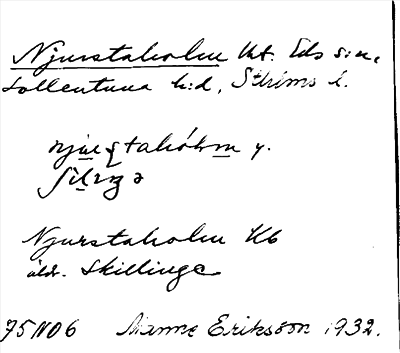 Njurstaholm Ut. Eds sn,
Sollentuna h:d, Sthlms l.
y.
Njurstaholm Kb
äldr. Skillinge
75 N 06 Manne Eriksson 1932.